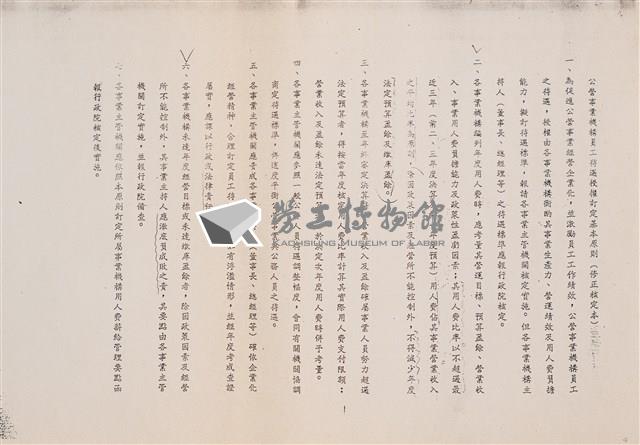 公營事業機構員工待遇授權訂定基本原則（修正核定本）
一、為促進公營事業經營企業化，並激勵員工工作績效，公營事業機構員工
之待遇，授權由各事業機構衡酌其事業生產力、營運績效及用人費負擔
能力，擬訂待遇標準，報請各事業主管機關核定實施。但各事業機構主
持人（董事長、總經理等）之待遇標準應報行政院核定。
二、各事業機構編列年度用人費時，應考量其營運目標、預算盈餘、營業收
入、事業用人費負擔能力及政策性盈虧因素；其用人費比率以不超過最
近三年（前二、三年度決算 年度預算）用人費佔其事業營業收入
之平均比率為原則，除因政策因素及經營所不能控制外，不得減少年度
法定預算盈餘及繳庫盈餘。
三、各事業機構至年終決算 營業收入及盈餘確屬事業人員努力超過
法定預算者，得按當年度核 用人費比率計算其實際用人費支付限額；
營業收入及盈餘未達法定預算 於決定次年度用人費時併予考量。
四、各事業主管機關應參照一般公 人員待遇調整幅度，會同有關機關協調
商定待遇標準，俾適度平衡 事業與公務人員之待遇。
五、各事業主管機關應責成各事業 董事長、總經理等）確依企業化
經營精神，合理訂定員工待 有浮濫情形，並經年度考成查證
屬實，應課以行政或法律責任
六、各事業機構未達年度經營目標或未達繳庫盈餘者，除因政策因素及經營
所不能控制外，其事業主持人應激底負成敗之責，其要點由各事業主管
機關訂定實施，並報行政院備查。
七、各事業主管機關應依照本原則訂定所屬事業機構用人費薪給管理要點函
報行政院核定後實施。
1
勞工博物館
KAOHSIUNG MUSEUM OF LABOR